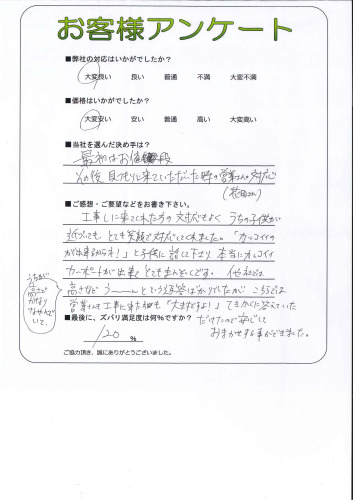 お客様アンケート
■弊社の対応はいかがでしたか？
大変良い 良い 普通 不満 大変不満
■価格はいかがでしたか？
大変安い 安い 普通 高い 大変高い
■当社を選んだ決め手は？
最初はお値段
その後 見つもりに来ていただいた時の営業さんの対応
(花田さん)
■ご感想・ご要望などをお書き下さい。
工事しに来てくれた方の対応もよく うちの子供が
近づいても、とても笑顔で対応してくれました。「カッコイイの
が出来るからネ!」と子供に話して下さり 本当にカッコイイ
カーポートが出来て とてもまんぞくです。 他社では
高さなど う～～んという返答ばかりでしたが こちらでは
営業さんも工事に来た〇も「大丈夫ですよ!」 てきかくに答えていた
だけたので安心して
おまかせする事ができました。
うちが
■最後に、ズバリ満足度は何％ですか？
120 %
ご協力頂き、誠にありがとうございました。